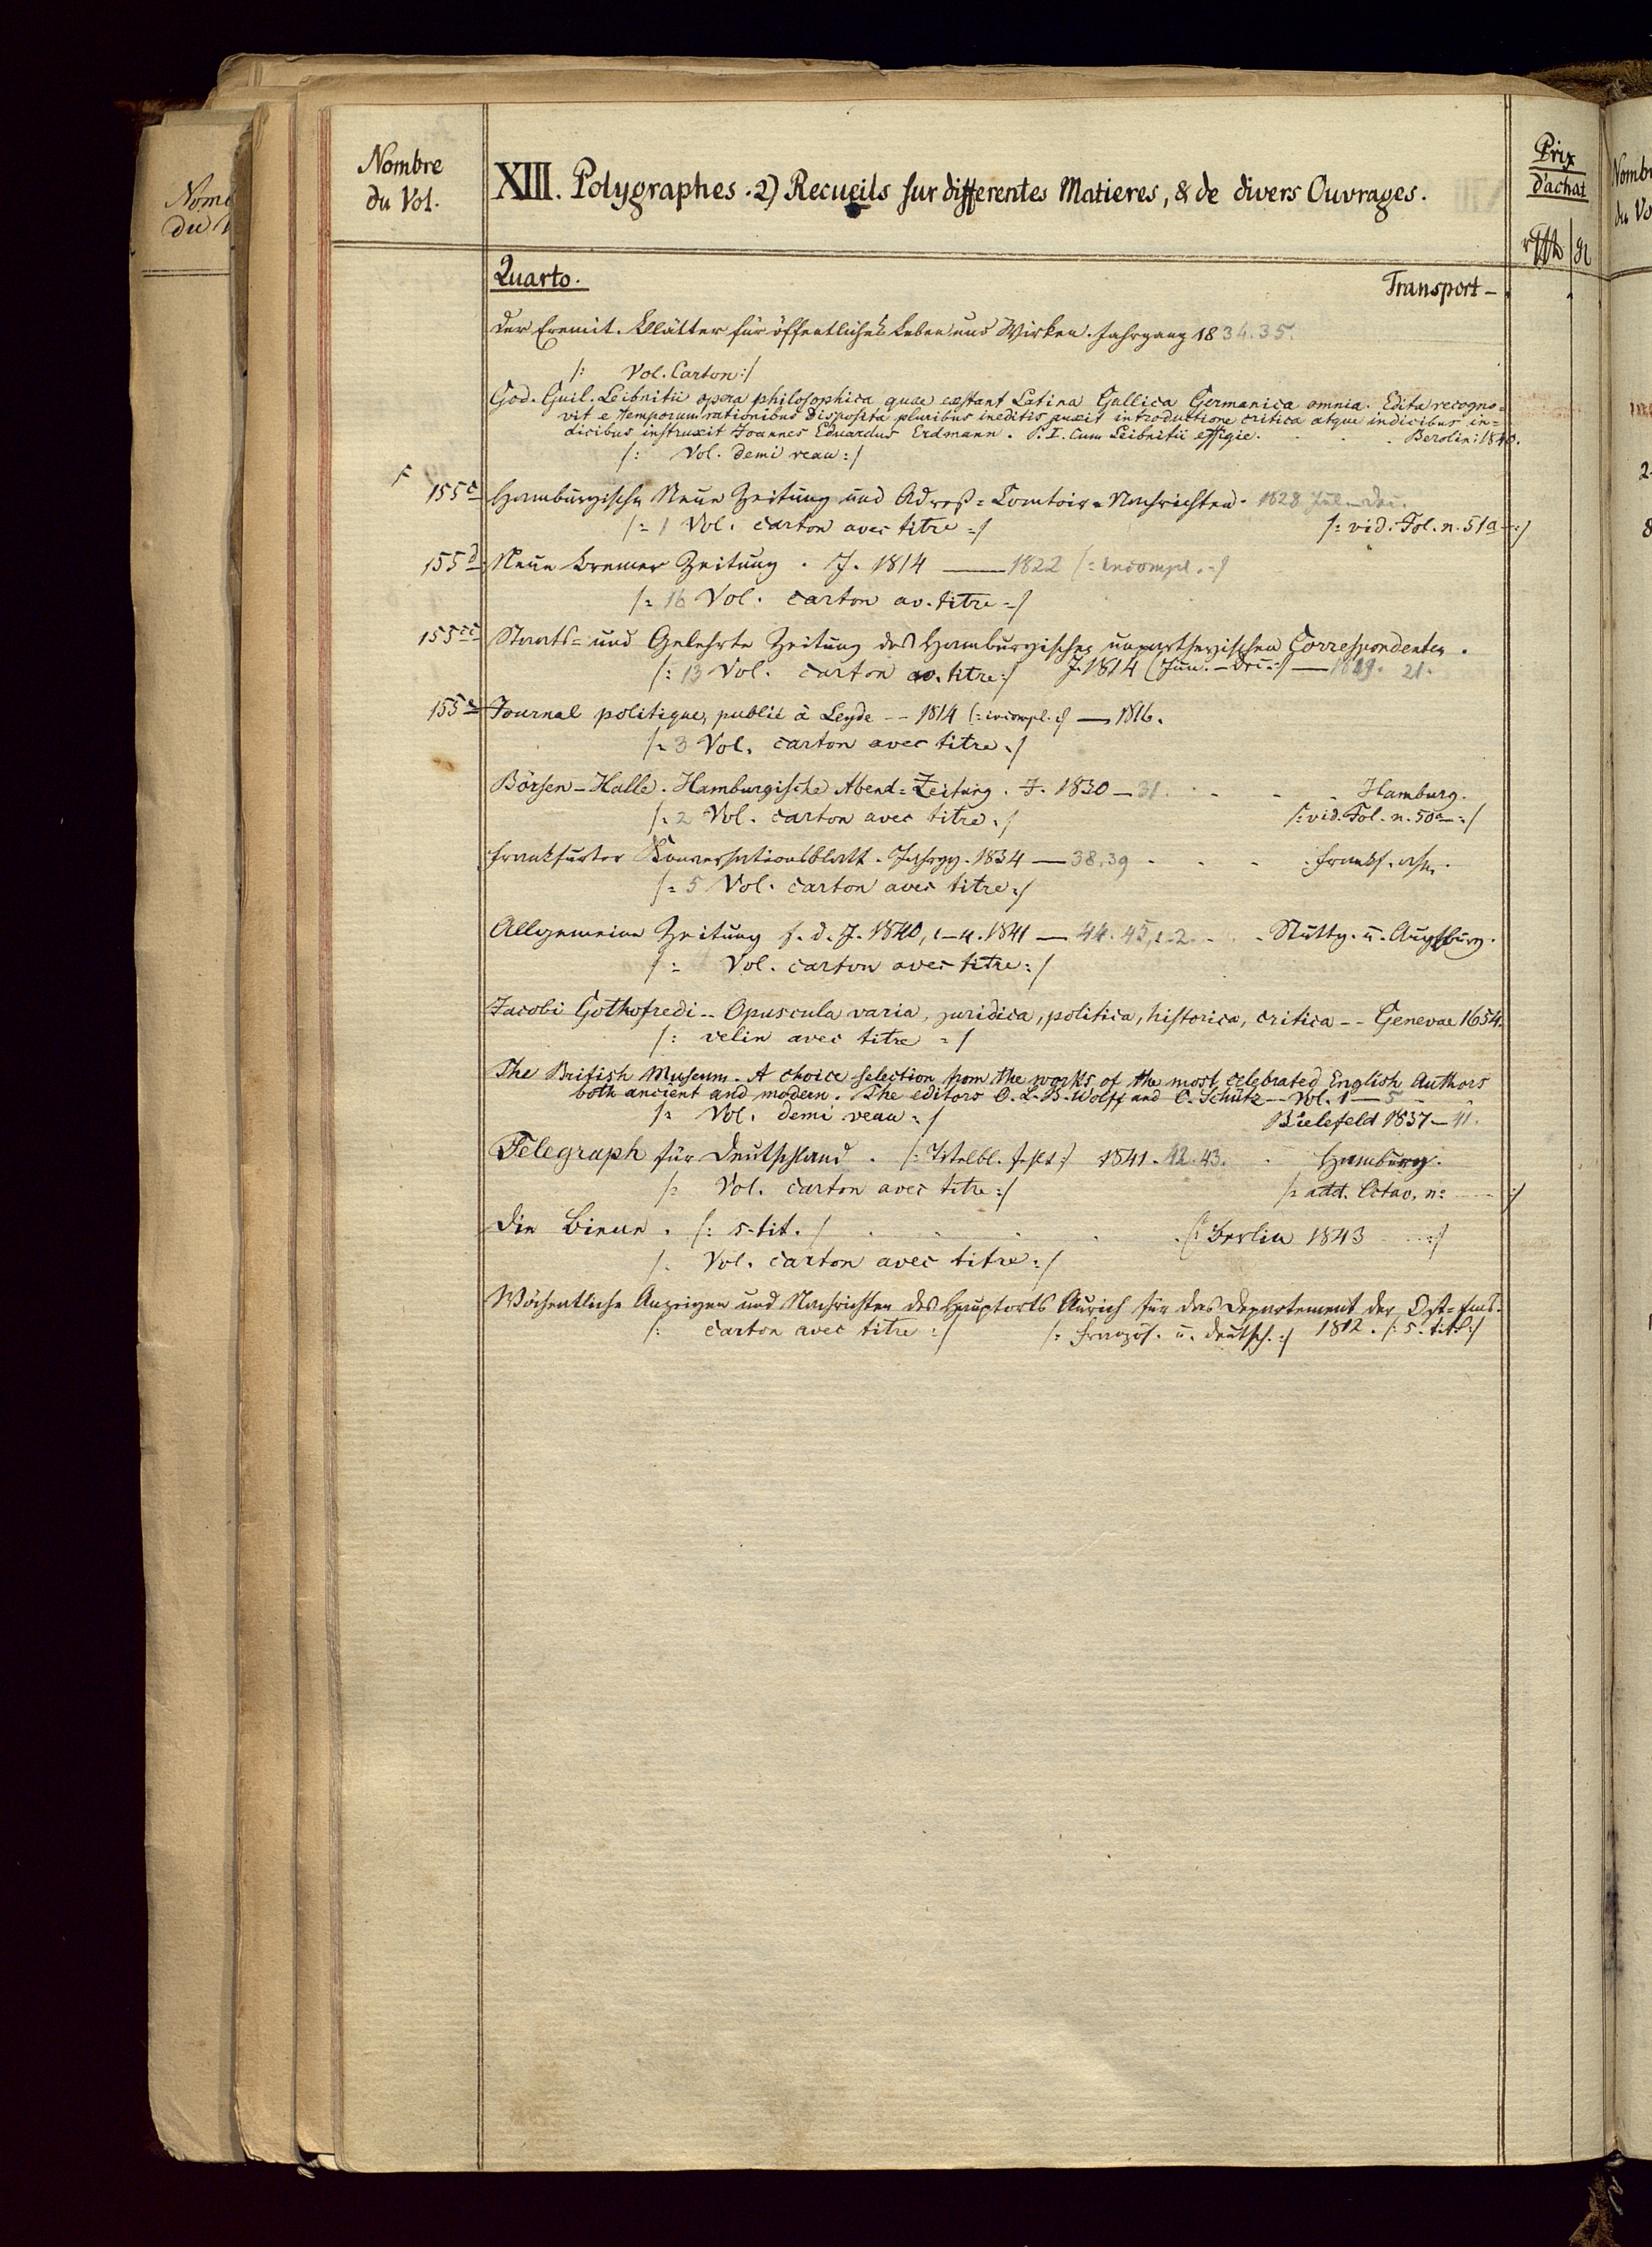 Nombre
du Vol.
XIII. Polygraphes. 2) Recueils sur differentes Matieres, & de divers Ouvrages.
Prix
d'achat
Quarto.
Transport -
Der Eremit. Blätter für öffentliches Leben und Wirken. Jahrgang 1834.35.
/: Vol. Carton :/
God. Guil. Leibnitii opera philosophica quae exstant Latina Gallica Germanica omnia. Edita recogno=
vit e temporum rationibus disposita pluribus ineditis auxit introductione critica atque indicibus in=
dicibus instruxit Joannes Eduardus Erdmann. P. I. Cum Leibnitii effigie. Berolin: 1840.
/: Vol. demi veau :/
155c Hamburgische Neue Zeitung und Adreß=Comtoir=Nachrichten. 1828
/: 1 Vol. carton avec titre :/ /: vid. Fol. n. 51a :/
155d Neue Bremer Zeitung. J. 1814 — 1822 /: incompl. :/
/: 16 Vol. carton av. titre :/
155cc Staats= und Gelehrte Zeitung des Hamburgischen unpartheyischen Correspondenten.
/: 13 Vol. carton av. titre :/ J. 1814 (Jun. - Dec. :/ — 1819. 21.
155e Journal politique, publié à Leyde -- 1814 /: incompl. :/ — 1816.
/: 3 Vol. carton avec titre :/
Börsen-Halle. Hamburgische Abend=Zeitung. J. 1830 — 31. Hamburg.
/: 2 Vol. carton avec titre :/ /: vid. Fol. n. 50a :/
Frankfurter Konversationsblatt. Jahrgg. 1834 — 38.39 Frankf. a/m.
/: 5 Vol. carton avec titre :/
Allgemeine Zeitung f. d. J. 1840, 1-4. 1841 — 44. 45, 1-2. Stuttg. u. Augsburg.
/: Vol. carton avec titre :/
Jacobi Gothofredi -- Opuscula varia, juridica, politica, historica, critica -- Genevae 1654.
/: velin avec titre :/
The British Museum. A choice selection from the works of the most celebrated English Authors
both ancient and modern. The editors O. L. B. Wolff and C. Schütz -- Vol. 1 — 5
/: Vol. demi veau :/ Bielefeld 1837 — 41.
Telegraph für Deutschland. /: Titelbl. fehlt :/ 1841. 42. 43. Hamburg.
/: Vol. carton avec titre :/ /: add. Octav. n: :/
Die Biene. /: s. tit. / /: Berlin 1843 :/
/: Vol. carton avec titre :/
Wöchentliche Anzeigen und Nachrichten des Hauptorts Aurich für das Departement der Ost=Ems.
/: carton avec titre :/ /: Französ. u. deutsch. :/ 1812. /: s. titl :/